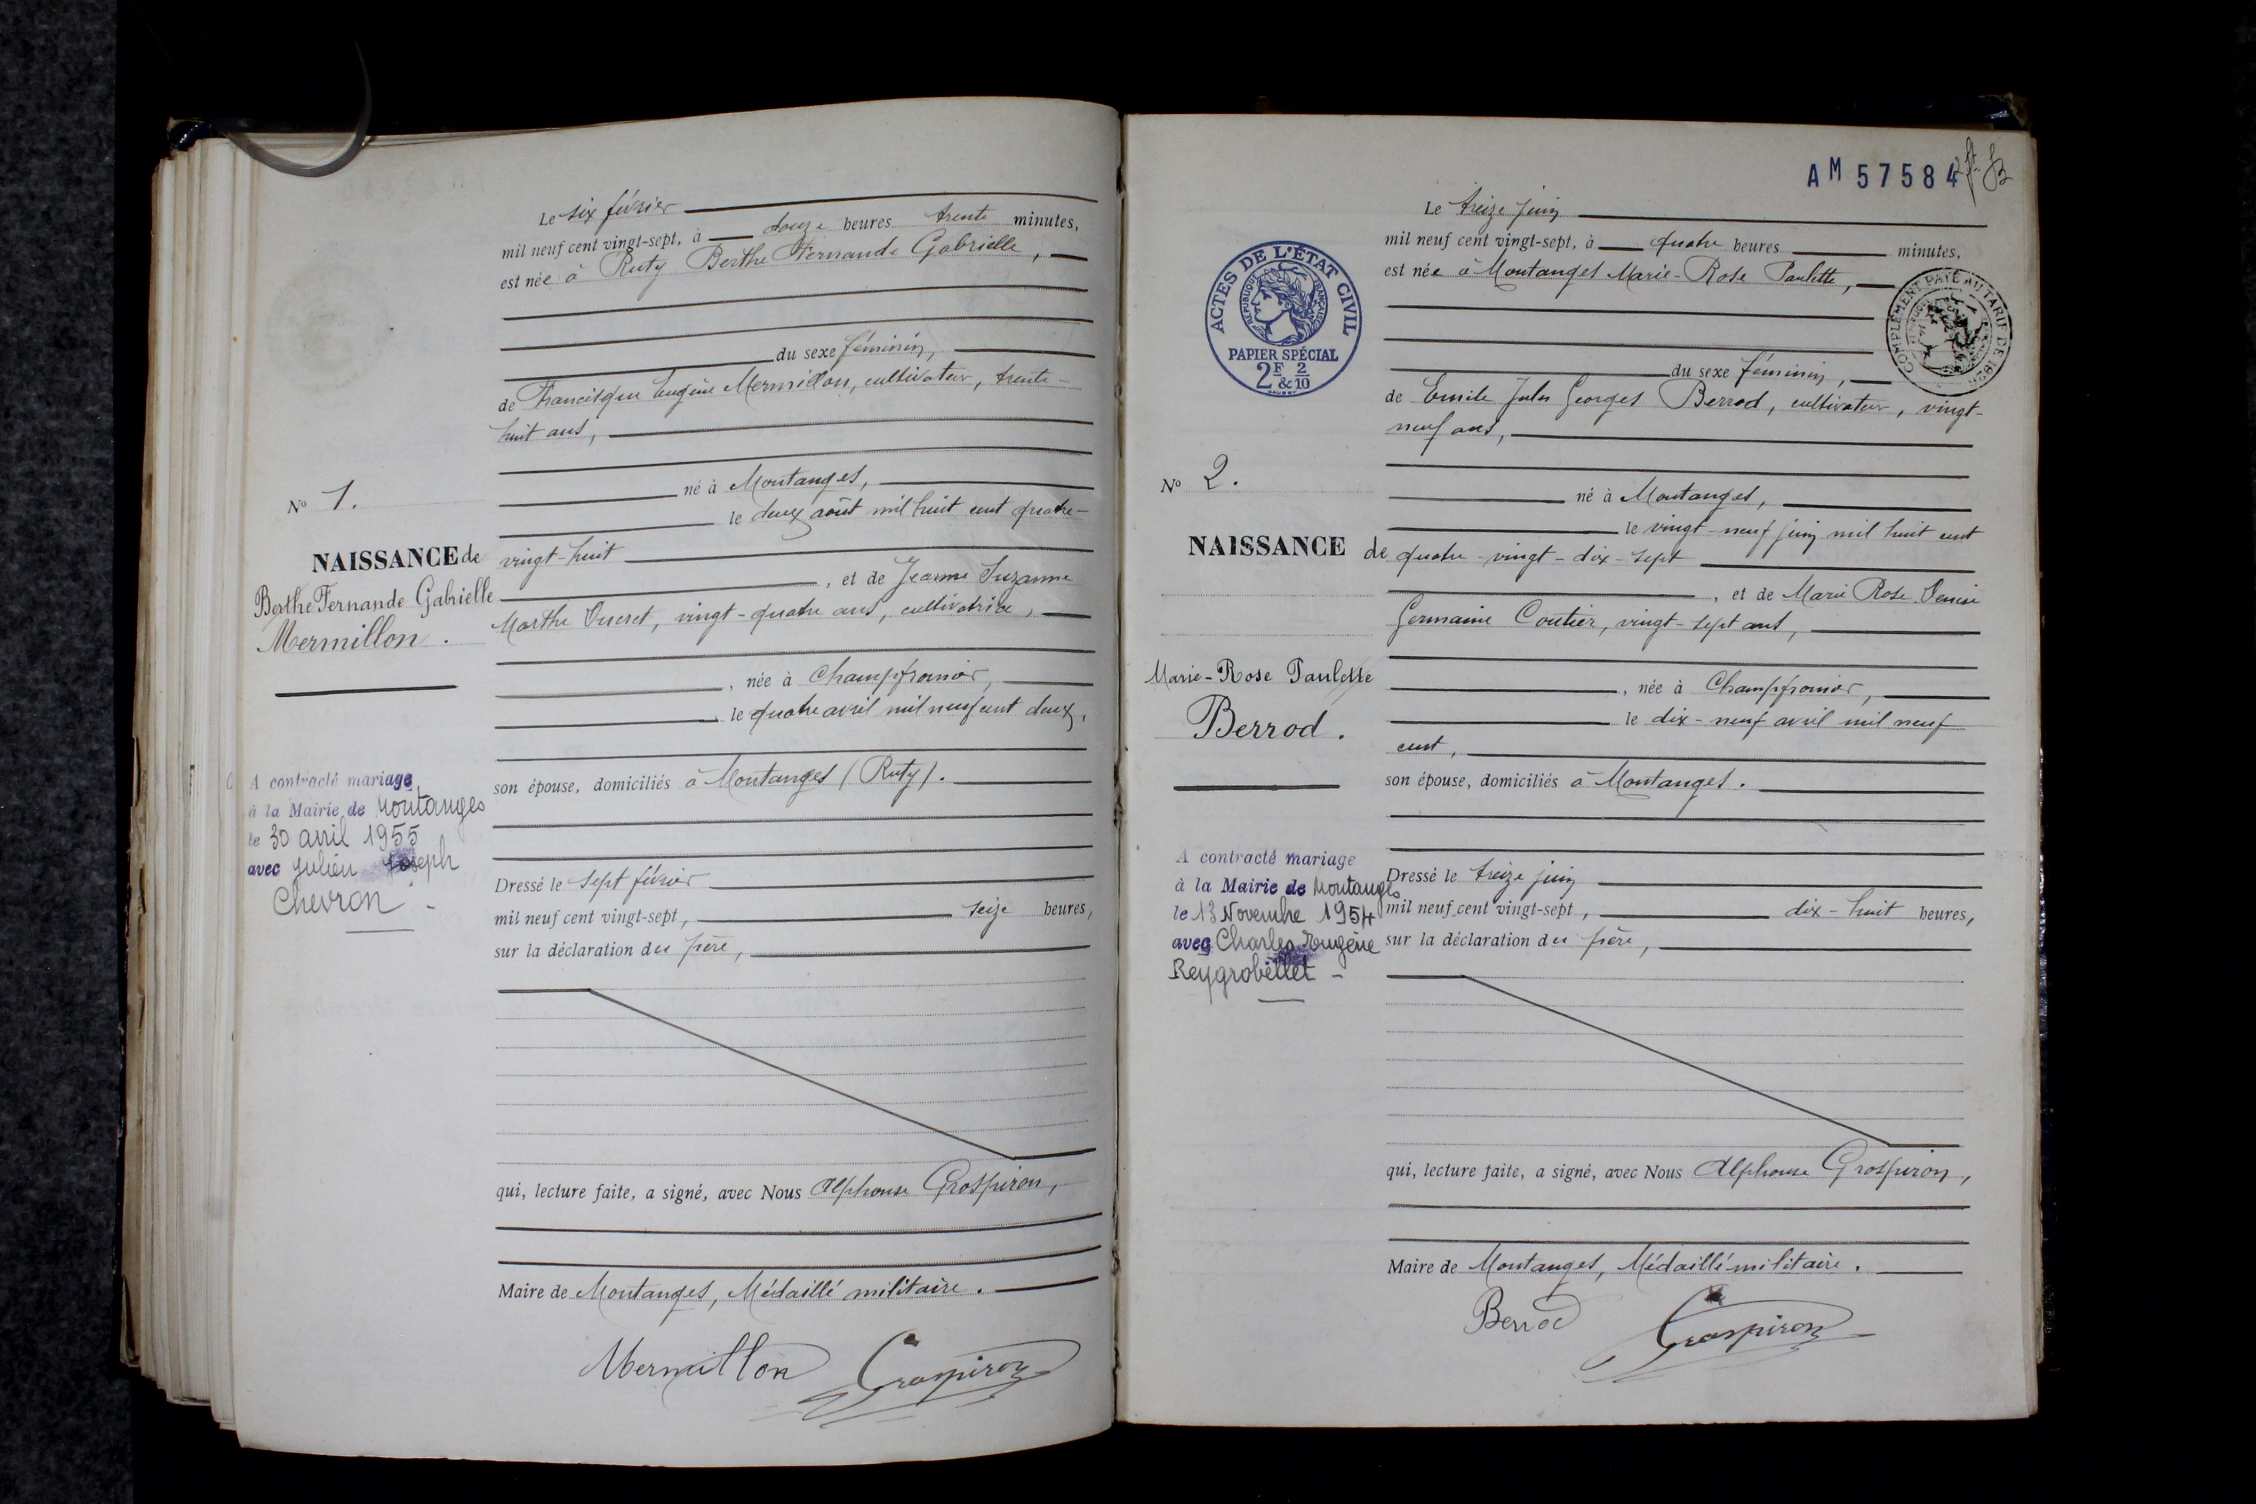 Le six février
mil neuf cent vingt-sept, à douze heures trente minutes,
est née à Ruty Berthe Fernande Gabrielle,
du sexe féminin,
de Francisque Eugène Mermillon, cultivateur, trente-
huit ans,
né à Montanges,
le deux août mil huit cent quatre-
vingt-huit
, et de Jeanne Suzanne
Marthe Ducret, vingt-quatre ans, cultivatrice,
, née à Champfromier,
le quatre avril mil neuf cent deux,
son épouse, domiciliés à Montanges (Ruty).
Dressé le sept février
mil neuf cent vingt-sept, seize heures,
sur la déclaration du père,
qui, lecture faite, a signé, avec Nous Alphonse Grospiron,
Maire de Montanges, Médaillé militaire.
Mermillon Grospiron
No 1.
NAISSANCE de
Berthe Fernande Gabrielle
Mermillon.
A contracté mariage
à la Mairie de Montanges
le 30 avril 1955
avec Julien Joseph
Chevron -
AM 57584
Le treize juin
mil neuf cent vingt-sept, à quatre heures minutes,
est née à Montanges Marie-Rose Paulette,
du sexe féminin,
de Emile Jules Georges Berrod, cultivateur, vingt-
neuf ans,
né à Montanges,
le vingt-neuf juin mil huit cent
quatre-vingt-dix-sept
, et de Marie Rose Denise
Germaine Coutier, vingt-sept ans,
, née à Champfromier,
le dix-neuf avril mil neuf
cent,
son épouse, domiciliés à Montanges.
Dressé le treize juin
mil neuf cent vingt-sept, dix-huit heures,
sur la déclaration du père,
qui, lecture faite, a signé, avec Nous Alphonse Grospiron,
Maire de Montanges, Médaillé militaire.
Berrod Grospiron
ACTES DE L'ÉTAT CIVIL
RÉPUBLIQUE FRANÇAISE
PAPIER SPÉCIAL
2F & 2/10
COMPLÉMENT PAYÉ AU TARIF DE
No 2.
NAISSANCE de
Marie-Rose Paulette
Berrod.
A contracté mariage
à la Mairie de Montanges
le 13 Novembre 1954
avec Charles Eugène
Reygrobellet -